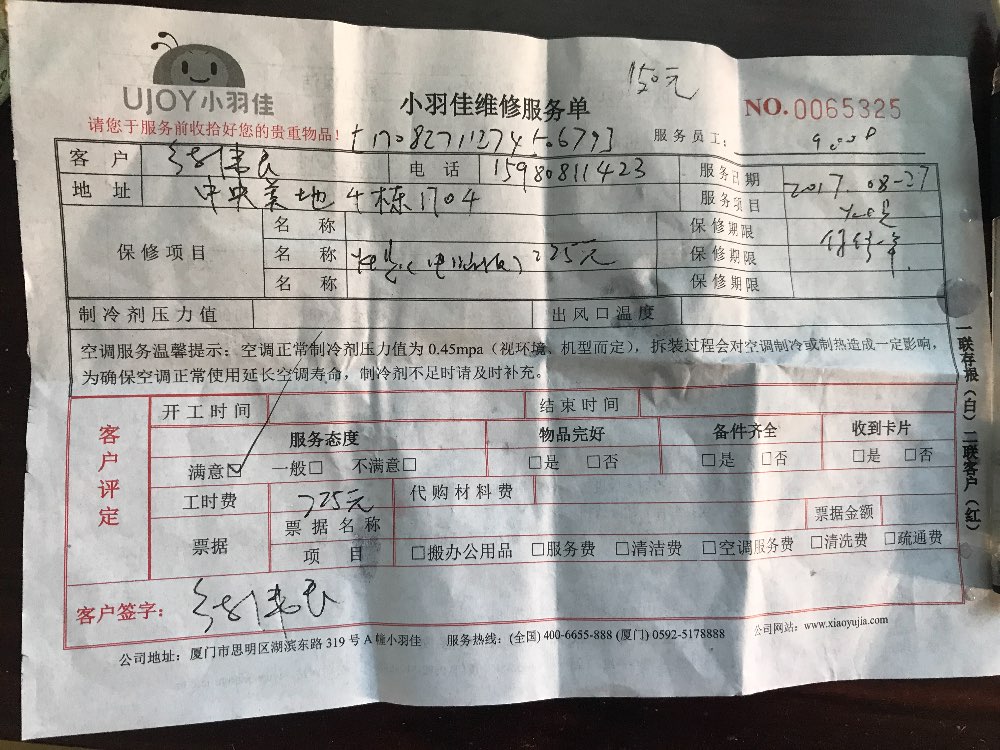 150元
UJOY小羽佳
小羽佳维修服务单
NO.0065325
请您于服务前收拾好您的贵重物品！
服务员工：
客 户
电 话 15980811423
服务日期 2017.08-27
地 址 中央美地4栋1704
服务项目
保修项目
名 称
保修期限
名 称 225元
保修期限
名 称
保修期限
制冷剂压力值
出风口温度
空调服务温馨提示：空调正常制冷剂压力值为 0.45mpa（视环境、机型而定），拆装过程会对空调制冷或制热造成一定影响，
为确保空调正常使用延长空调寿命，制冷剂不足时请及时补充。
一联存根（白）二联客户（红）
客户评定
开工时间
结束时间
服务态度
物品完好
备件齐全
收到卡片
满意☑ 一般□ 不满意□
□是 □否
□是 □否
□是 □否
工时费 225元
代购材料费
票据
票据名称
票据金额
项 目
□搬办公用品 □服务费 □清洁费 □空调服务费 □清洗费 □疏通费
客户签字：
公司地址：厦门市思明区湖滨东路 319 号 A 幢小羽佳
服务热线：(全国) 400-6655-888 (厦门) 0592-5178888
公司网站：www.xiaoyujia.com